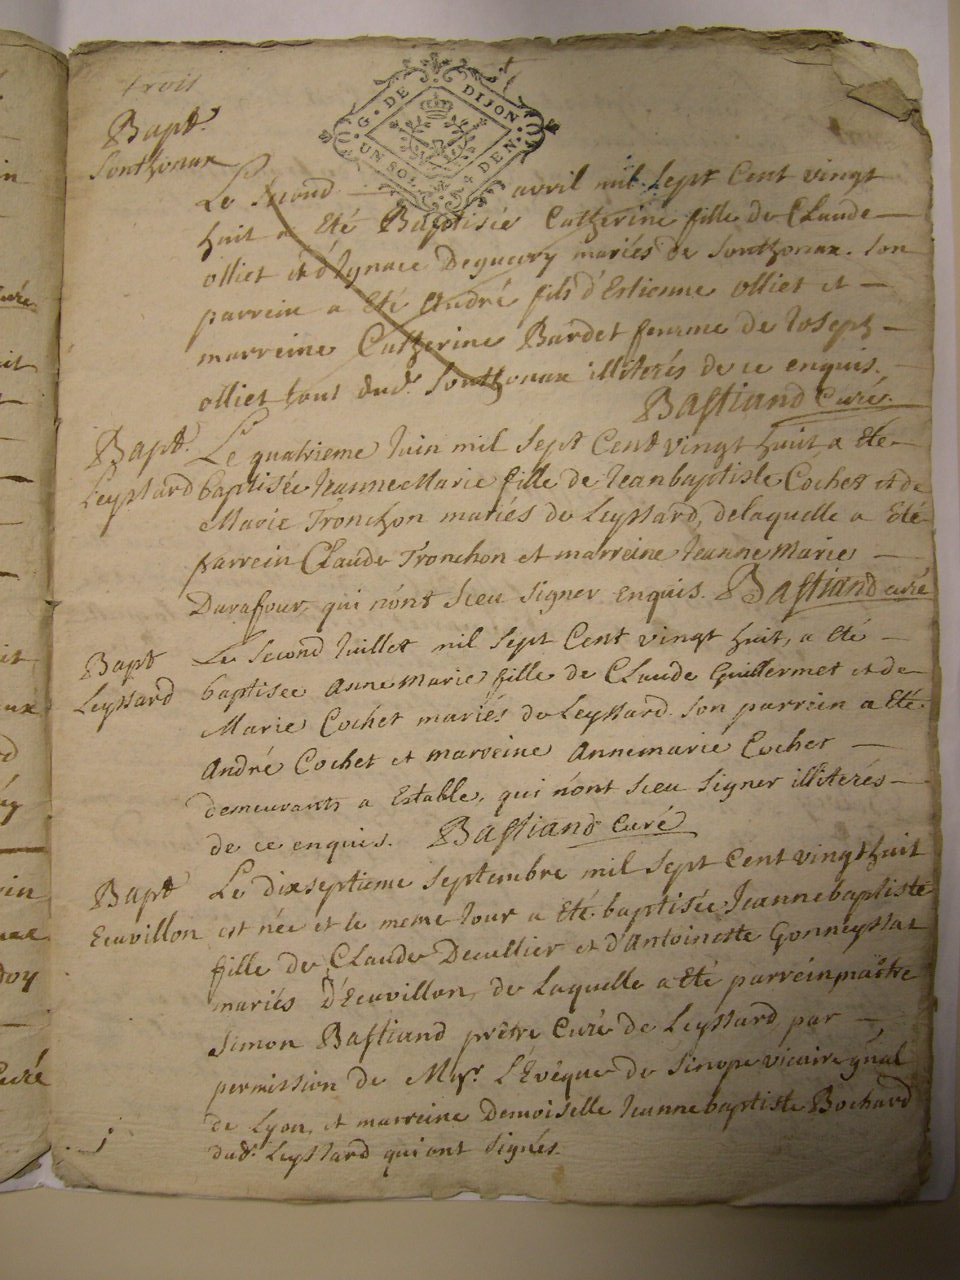 trois
G. DE DIJON
UN SOL 4 DEN.
Bapt.
Sonthonax
Le Second avril mil Sept Cent vingt
huit a Eté Baptisée Catherine fille de CLaude
olliet et d'Ignace Deguerry mariés de Sonthonax. Son
parrein a Eté André fils d'Estienne olliet et
marreine Catherine Bardet femme de Joseph
olliet tous dud. Sonthonax illiterés de ce enquis.
BaStiand Curé.
Bapt.
Leyssard
Le quatrieme Juin mil Sept Cent vingt huit, a Eté
baptisée Jeanne Marie fille de Jeanbaptiste Cochet et de
Marie Tronchon mariés de Leyssard, delaquelle a Eté
parrein CLaude Tronchon et marreine Jeanne Marie
Durafour, qui n'ont Sceu Signer enquis. BaStiand curé
Bapt
Leyssard
Le Second Juillet mil Sept Cent vingt huit, a Eté
baptisee Anne Marie fille de CLaude Guillermet et de
Marie Cochet mariés de Leyssard. Son parrein a Eté
André Cochet et marreine Annemarie Cochet
demeurants a Estable, qui n'ont Sceu Signer illiterés
de ce enquis. BaStiand Curé
Bapt
Ecuvillon
Le dixseptieme Septembre mil Sept Cent vingt huit
est née et le meme Jour a Eté baptisée Jeannebaptiste
fille de CLaude Decullier et d'Antoinette Gonneyssat
mariés D'Ecuvillon, de Laquelle a Eté parrein maitre
Simon BaStiand prêtre Curé de Leyssard par
permission de Mgr. L'Evêque de Sinope vicaire gnal
de Lyon, et marreine Demoiselle Jeannebaptiste Bochard
dud. Leyssard qui ont Signés.